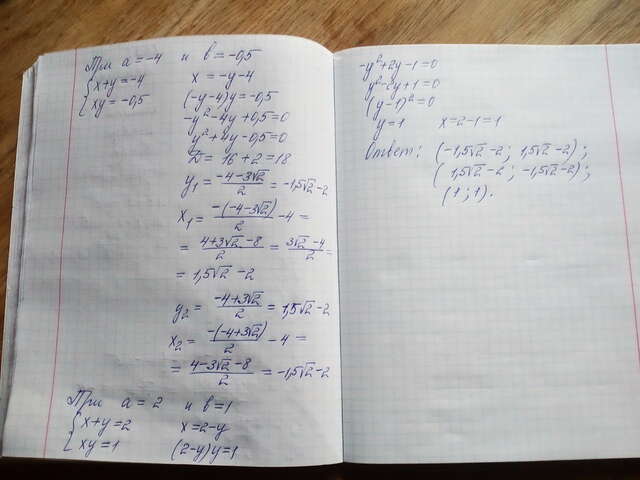 При a = -4 и b = -0,5
{ x+y = -4     x = -y-4
{ xy = -0,5     (-y-4)y = -0,5
-y²-4y+0,5=0
y²+4y-0,5=0
D = 16+2 = 18
y₁ = (-4-3√2)/2 = -1,5√2-2
x₁ = -(-4-3√2)/2 - 4 =
= (4+3√2-8)/2 = (3√2-4)/2 =
= 1,5√2-2
y₂ = (-4+3√2)/2 = 1,5√2-2
x₂ = -(-4+3√2)/2 - 4 =
= (4-3√2-8)/2 = -1,5√2-2
При a = 2 и b = 1
{ x+y = 2     x = 2-y
{ xy = 1     (2-y)y = 1
-y²+2y-1=0
y²-2y+1=0
(y-1)²=0
y=1     x=2-1=1
Ответ: (-1,5√2-2; 1,5√2-2);
(1,5√2-2; -1,5√2-2);
(1; 1).